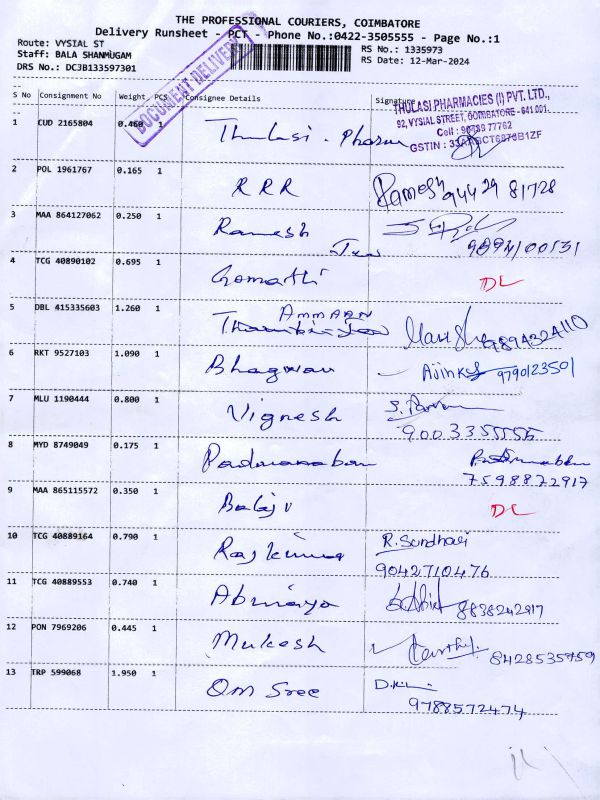 THE PROFESSIONAL COURIERS, COIMBATORE
Delivery Runsheet - PCT - Phone No.:0422-3505555 - Page No.:1
Route: VYSIAL ST
RS No.: 1335973
Staff: BALA SHANMUGAM
RS Date: 12-Mar-2024
DRS No.: DCJB133597301
DOCUMENT DELIVERY
S No Consignment No Weight PCS Consignee Details Signature
THULASI PHARMACIES (I) PVT. LTD.,
92, VYSIAL STREET, COIMBATORE - 641 001.
1 CUD 2165804 0.460 1 Thulasi - Pharm
2 POL 1961767 0.165 1 RRR Ramesh 944 29 81728
3 MAA 864127062 0.250 1 Ramesh
4 TCG 40890102 0.695 1 Gomathi DL
5 DBL 415335603 1.260 1 AMMAN 9894324110
6 RKT 9527103 1.090 1 Bhagwan 9790123501
7 MLU 1190444 0.800 1 Vignesh
9003355556
8 MYD 8749049 0.175 1 Padmanaban
7598872917
9 MAA 865115572 0.350 1 Balaji DL
10 TCG 40889164 0.790 1 Rajkumar R. Sundhari
9042710476
11 TCG 40889553 0.740 1 Abinaya 8838242917
12 PON 7969206 0.445 1 Mukesh 8428535959
13 TRP 599068 1.950 1 Om Sree
9788572474